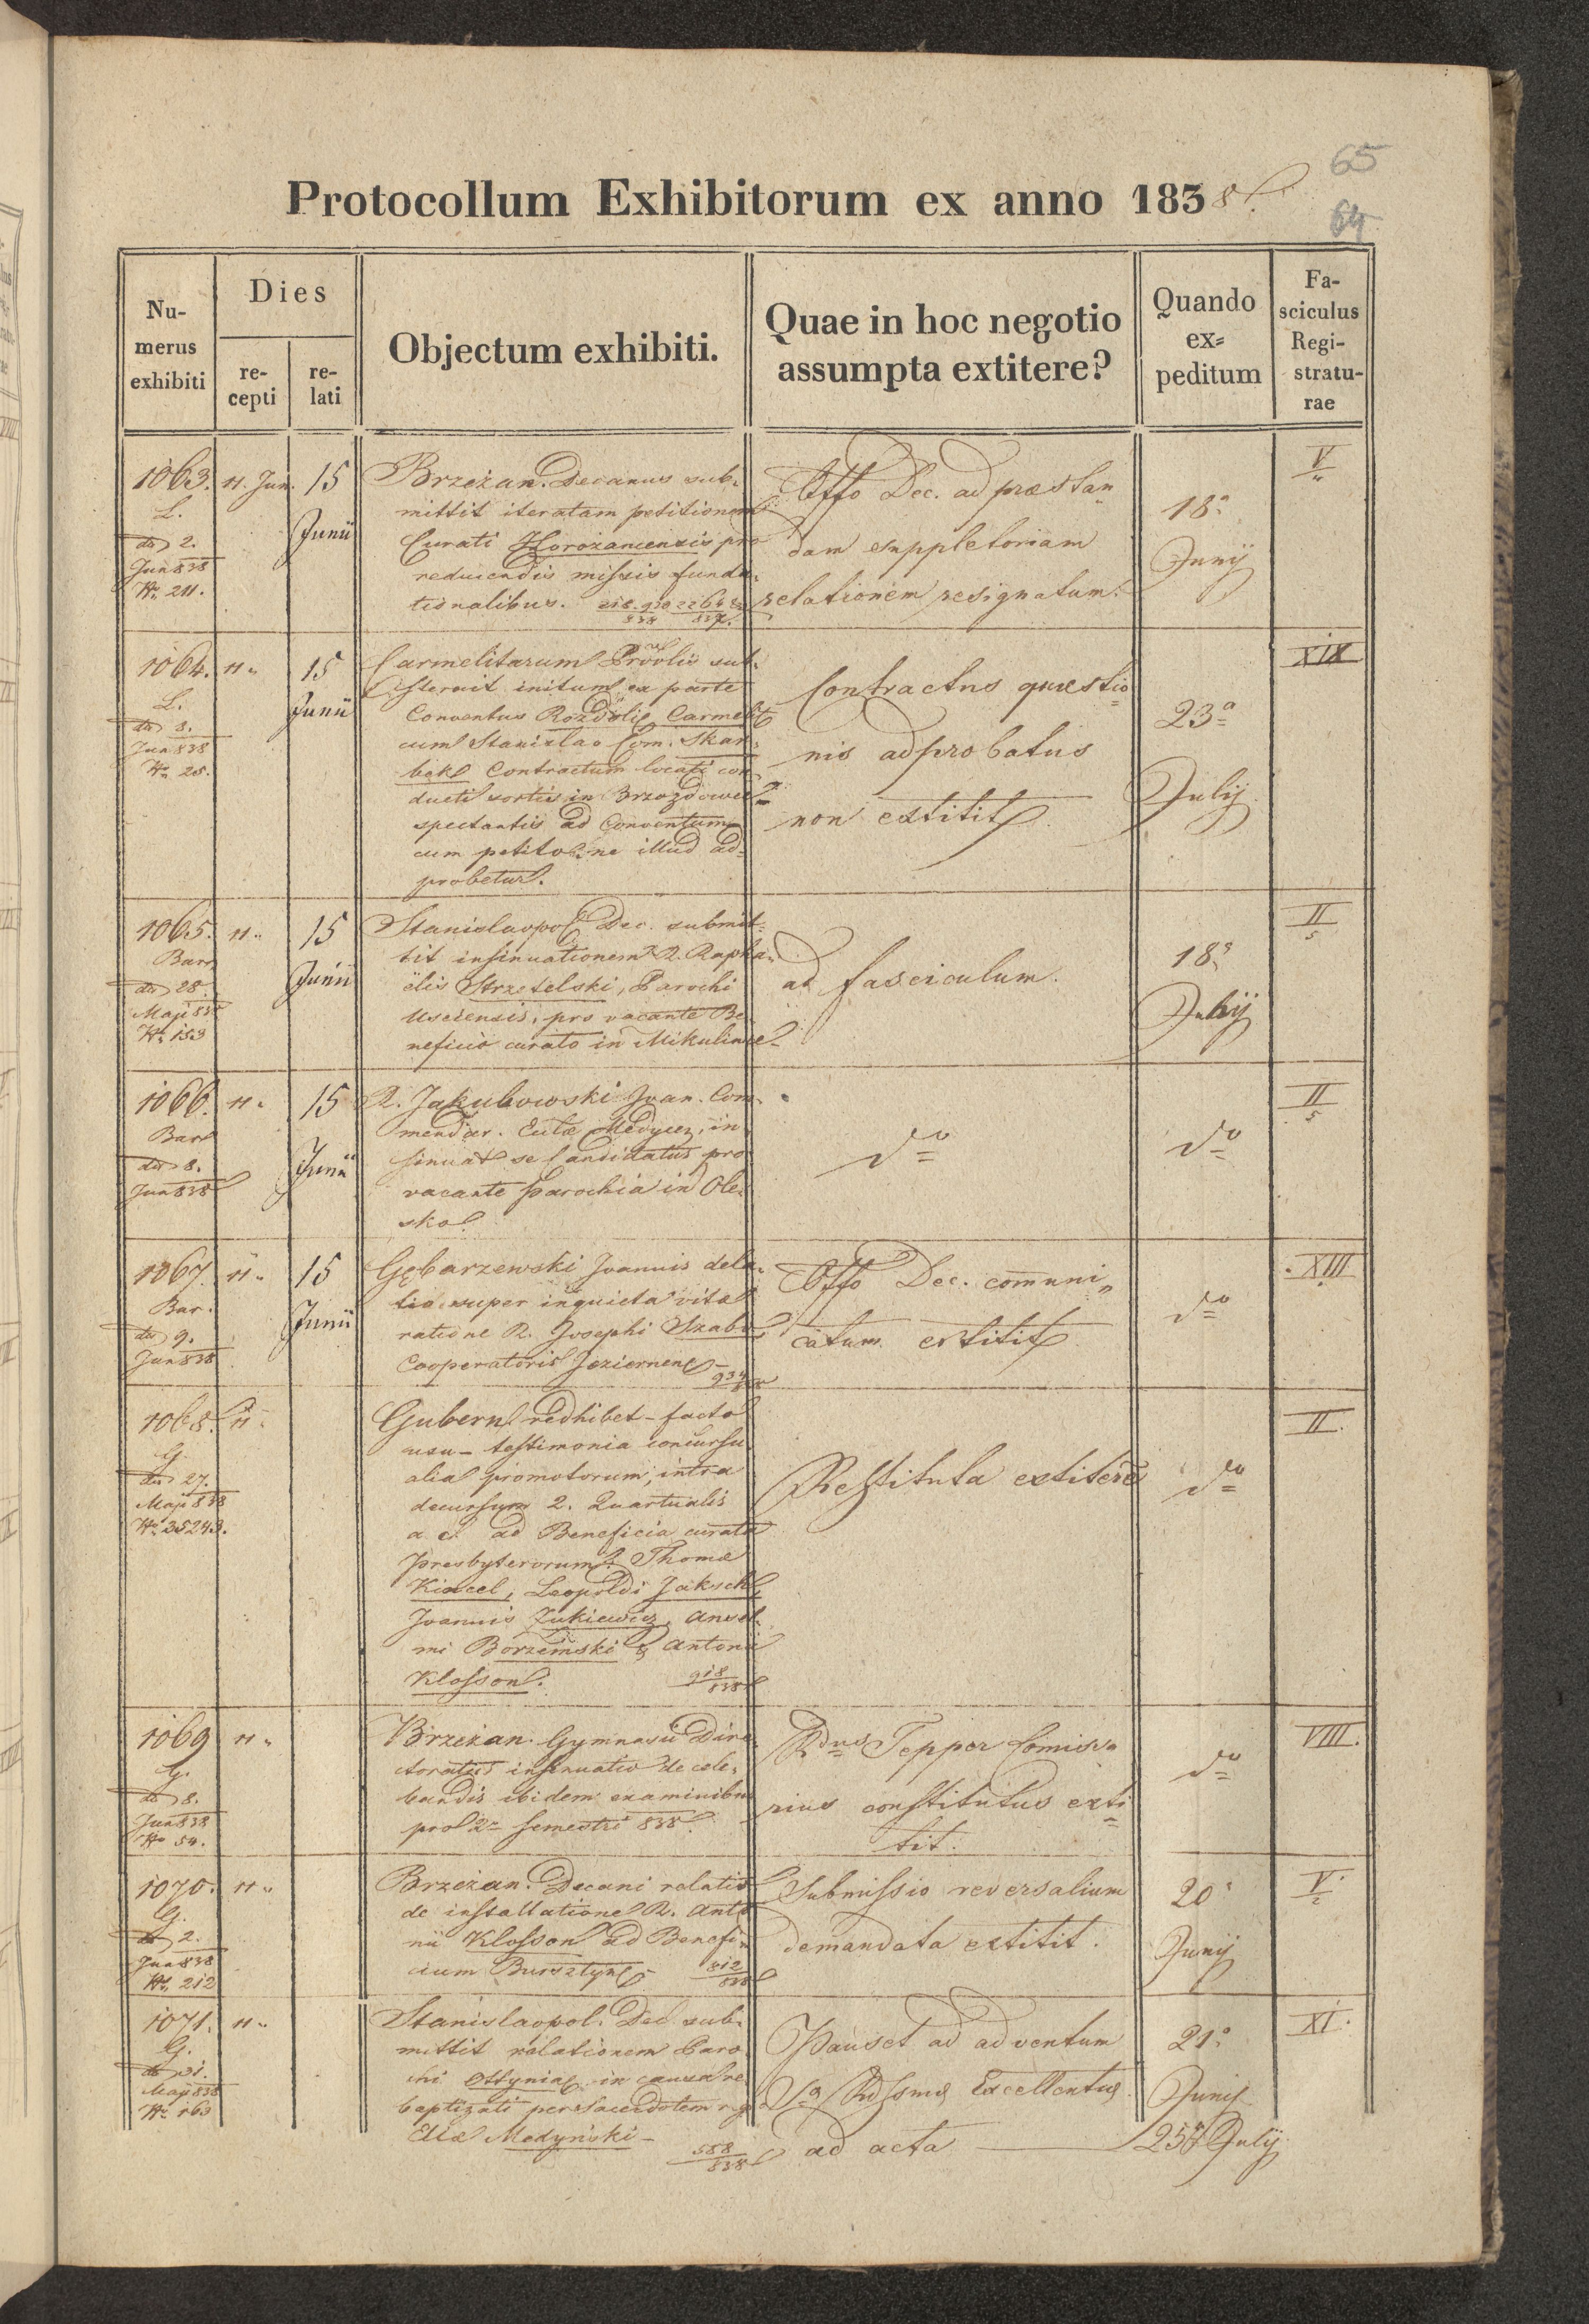 65
64
Protocollum Exhibitorum ex anno 1838.
Nu-
merus
exhibiti
Dies
re-
cepti
re-
lati
Objectum exhibiti.
Quae in hoc negotio
assumpta extitere?
Quando
ex-
peditum
Fa-
sciculus
Regi-
stratu-
rae
1063.
L.
dto 2.
Jun 838
Nr. 211.
11. Jun.
15
Junii
Brzeżan. Decanus sub-
mittit iteratam petitionem
Curati Horożanensis pro
reducendis missis funda-
tionalibus.
Offo Dec. ad praestan
dam suppletoriam
relationem resignatum.
18a
Junij
V
1064.
L.
dto 8.
Jun 838
Nr. 28.
11.
15
Junii
Carmelitarum Provlis sub-
sternit initum ex parte
Conventus Rozdolie Carmelit
cum Stanislao Com. Skar-
bek Contractum locati con-
ducti sortis in Brzozdowce
spectantis ad Conventum
cum petitoe ne illud ad-
probetur.
Contractus quaestio
nis adprobatus
non extitit.
23a
Julij
XIX
1065.
Bar.
dto 28.
Maji 838
Nr. 153
11.
15
Junii
Stanislaopol. Dec. submit-
tit insinuationem R. Rapha-
ëlis Strzetelski, Parochi
Usciensis, pro vacante Be-
neficio curato in Mikulince
ad fasciculum.
18a
Julij
II
5
1066.
Bar.
dto 8.
Jun 838
11.
15
Junii
R. Jakubowski Joan. Com-
mendar. Eclae Medycen, in
sinuat se Candidatus pro
vacante Parochia in Ole-
sko.
do
do
II
5
1067.
Bar.
dto 9.
Jun 838
11.
15
Junii
Gębarzewski Joannis dela-
tio super inquieta vitae
ratione R. Josephi Szabo
Cooperatoris Jeziernen
934
838
Offo Dec. comuni-
catum extitit
do
XIII
1068.
G.
dto 27.
Maji 838
Nr. 35243.
11.
Gubern. redhibet facto
usu testimonia concursu
alia promotorum, intra
decursum 2. Quartualis
a. c. ad Beneficia curata
Presbyterorum: Thomae
Kiacel, Leopoldi Jaksch,
Joannis Żukiewicz, Ansel-
mi Borzemski & Antonii
Klosson.
918
838
Restituta extitere
do
II.
1069
G.
dto 8.
Jun 838
Nr 54.
11.
Brzeżan. Gymnasii Dire-
ctoratus insinuatio de cele-
brandis ibidem examinibus
pro 2o semestri 838.
Rdus Tepper Comissa
rius constitutus exti
tit.
do
VIII.
1070.
G.
dto 2.
Jun 838
Nr. 212
11.
Brzeżan. Decani relatio
de installatione R. Anto
nii Klosson ad Benefi-
cium Bursztyn
812
838
Submissio reversalium
demandata extitit.
20a
Junij
V.
1071.
G.
dto 31.
Maji 838
Nr. 163
11.
Stanislaopol. Dec. sub-
mittit relationem Paro
chi Ottyniae in causa re-
baptizati per Sacerdotem r. g.
Eliae Modyński
588
838
Pauset ad adventum
Excellentiae
ad acta
21a
Junij
25a Julij
XI.